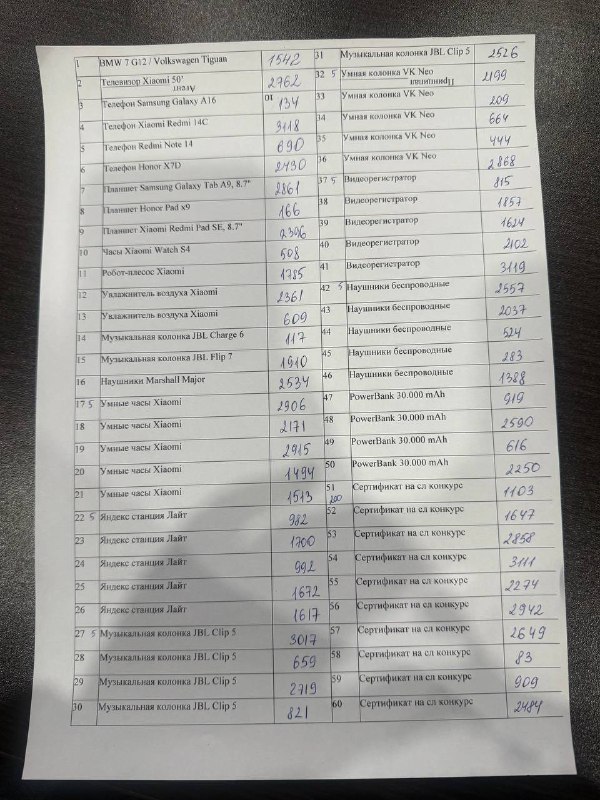 1 BMW 7 G12 / Volkswagen Tiguan 1542
2 Телевизор Xiaomi 50' 2762
3 Телефон Samsung Galaxy A16 01 134
4 Телефон Xiaomi Redmi 14C 3118
5 Телефон Redmi Note 14 690
6 Телефон Honor X7D 2490
7 Планшет Samsung Galaxy Tab A9, 8.7" 2861
8 Планшет Honor Pad x9 166
9 Планшет Xiaomi Redmi Pad SE, 8.7" 2396
10 Часы Xiaomi Watch S4 508
11 Робот-плесос Xiaomi 1785
12 Увлажнитель воздуха Xiaomi 2361
13 Увлажнитель воздуха Xiaomi 609
14 Музыкальная колонка JBL Charge 6 117
15 Музыкальная колонка JBL Flip 7 1910
16 Наушники Marshall Major 2534
17 5 Умные часы Xiaomi 2906
18 Умные часы Xiaomi 2171
19 Умные часы Xiaomi 2915
20 Умные часы Xiaomi 1494
21 Умные часы Xiaomi 1513
22 5 Яндекс станция Лайт 982
23 Яндекс станция Лайт 1700
24 Яндекс станция Лайт 992
25 Яндекс станция Лайт 1672
26 Яндекс станция Лайт 1617
27 5 Музыкальная колонка JBL Clip 5 3017
28 Музыкальная колонка JBL Clip 5 659
29 Музыкальная колонка JBL Clip 5 2719
30 Музыкальная колонка JBL Clip 5 821
31 Музыкальная колонка JBL Clip 5 2526
32 5 Умная колонка VK Neo 2199
33 Умная колонка VK Neo 209
34 Умная колонка VK Neo 664
35 Умная колонка VK Neo 444
36 Умная колонка VK Neo 2868
37 5 Видеорегистратор 815
38 Видеорегистратор 1857
39 Видеорегистратор 1624
40 Видеорегистратор 2102
41 Видеорегистратор 3119
42 5 Наушники беспроводные 2557
43 Наушники беспроводные 2037
44 Наушники беспроводные 524
45 Наушники беспроводные 283
46 Наушники беспроводные 1388
47 PowerBank 30.000 mAh 919
48 PowerBank 30.000 mAh 2590
49 PowerBank 30.000 mAh 616
50 PowerBank 30.000 mAh 2250
51 200 Сертификат на сл конкурс 1103
52 Сертификат на сл конкурс 1647
53 Сертификат на сл конкурс 2858
54 Сертификат на сл конкурс 3111
55 Сертификат на сл конкурс 2274
56 Сертификат на сл конкурс 2942
57 Сертификат на сл конкурс 2649
58 Сертификат на сл конкурс 83
59 Сертификат на сл конкурс 909
60 Сертификат на сл конкурс 2484